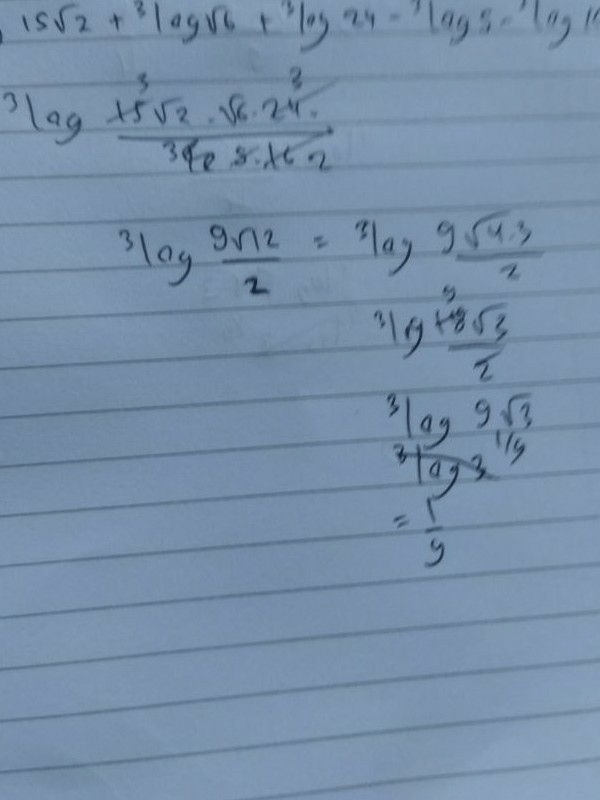 15√2 + ³log √6 + ³log 24 - ³log 5 - ³log
³log 15√2 · √6 · 24 ·
³log 9√12 / 2 = ³log 9√4.3 / 2
³log 18√3 / 2
³log 9√3
³log 3 1/9
= 1/9